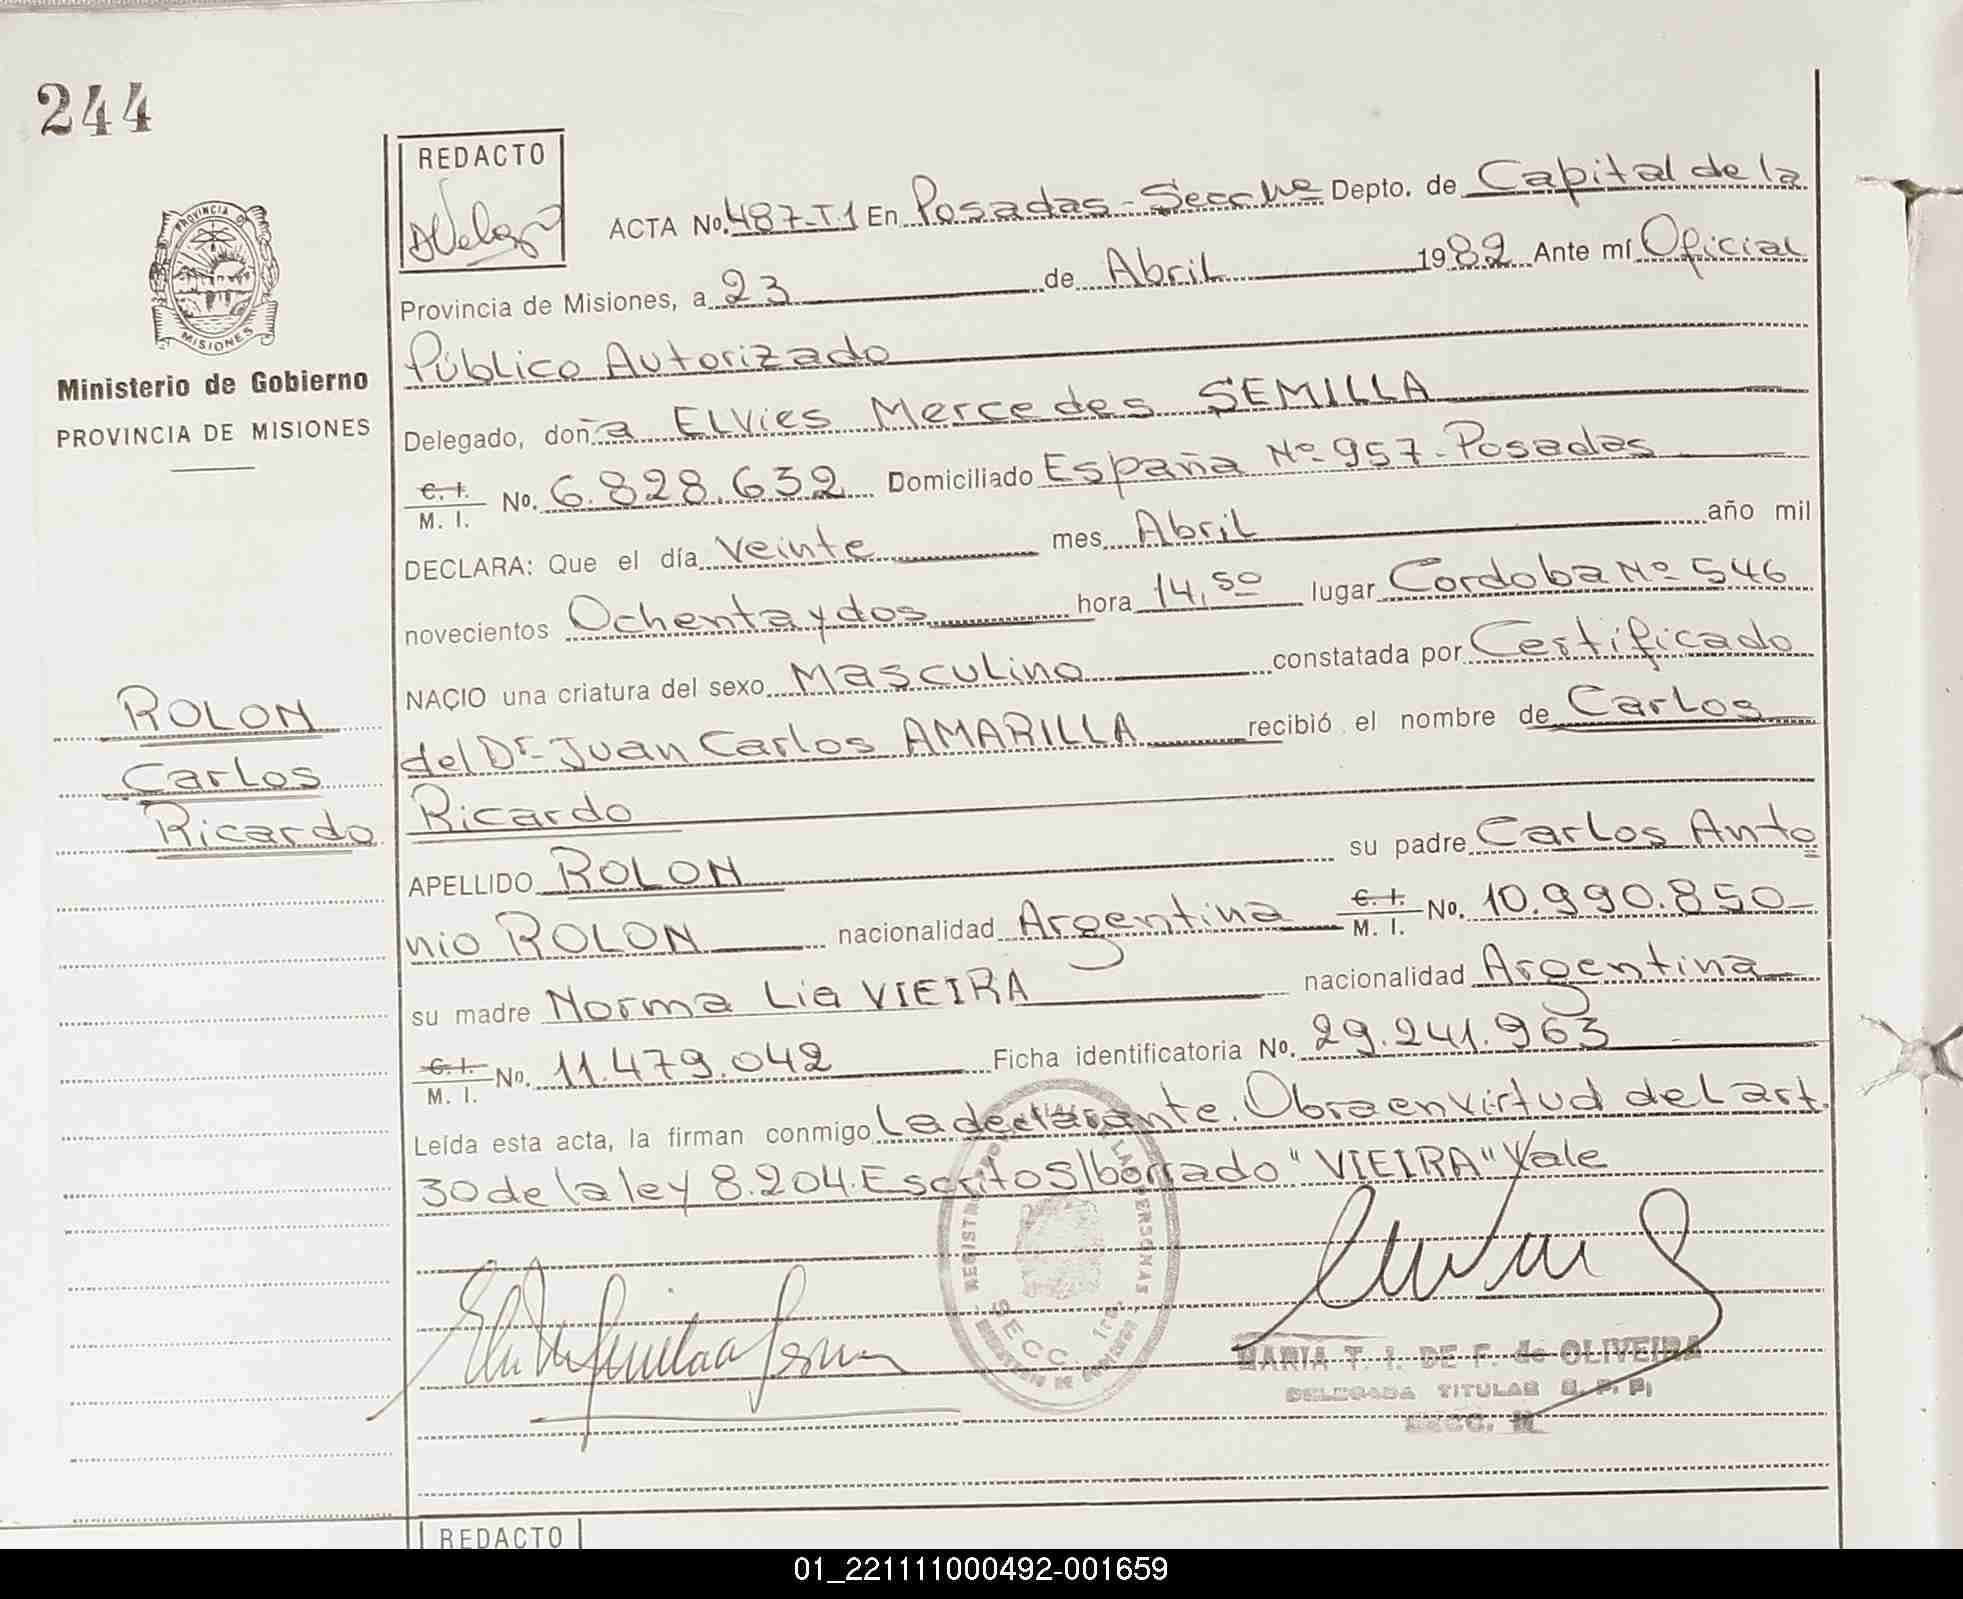 244
REDACTO
ACTA No. 487-T1 En Posadas - Secc Depto. de Capital de la
Provincia de Misiones, a 23 de Abril 1982 Ante mí Oficial
Público Autorizado
PROVINCIA DE MISIONES
Ministerio de Gobierno
PROVINCIA DE MISIONES
Delegado, don a ELVIES Mercedes SEMILLA
C. I. M. I. No. 6.828.632 Domiciliado España Nº 957 - Posadas
DECLARA: Que el día veinte mes Abril año mil
novecientos Ochenta y dos hora 14,50 lugar Cordoba Nº 546
NACIO una criatura del sexo Masculino constatada por Certificado
del Dr Juan Carlos AMARILLA recibió el nombre de Carlos
Ricardo
ROLON
Carlos
Ricardo
APELLIDO ROLON su padre Carlos Anto
nio ROLON nacionalidad Argentina C. I. M. I. No. 10.990.850
su madre Norma Lia VIEIRA nacionalidad Argentina
C. I. M. I. No. 11.479.042 Ficha identificatoria No. 29.241.963
Leída esta acta, la firman conmigo La declarante. Obra en virtud del art.
30 de la ley 8.204. Escritos/borrado "VIEIRA" Vale
REGISTRO LAS PERSONAS
SECC. 1ra.
MARIA T. I. DE F. de OLIVEIRA
DELEGADA TITULAR R. P. P.
SECC.
REDACTO
01_221111000492-001659